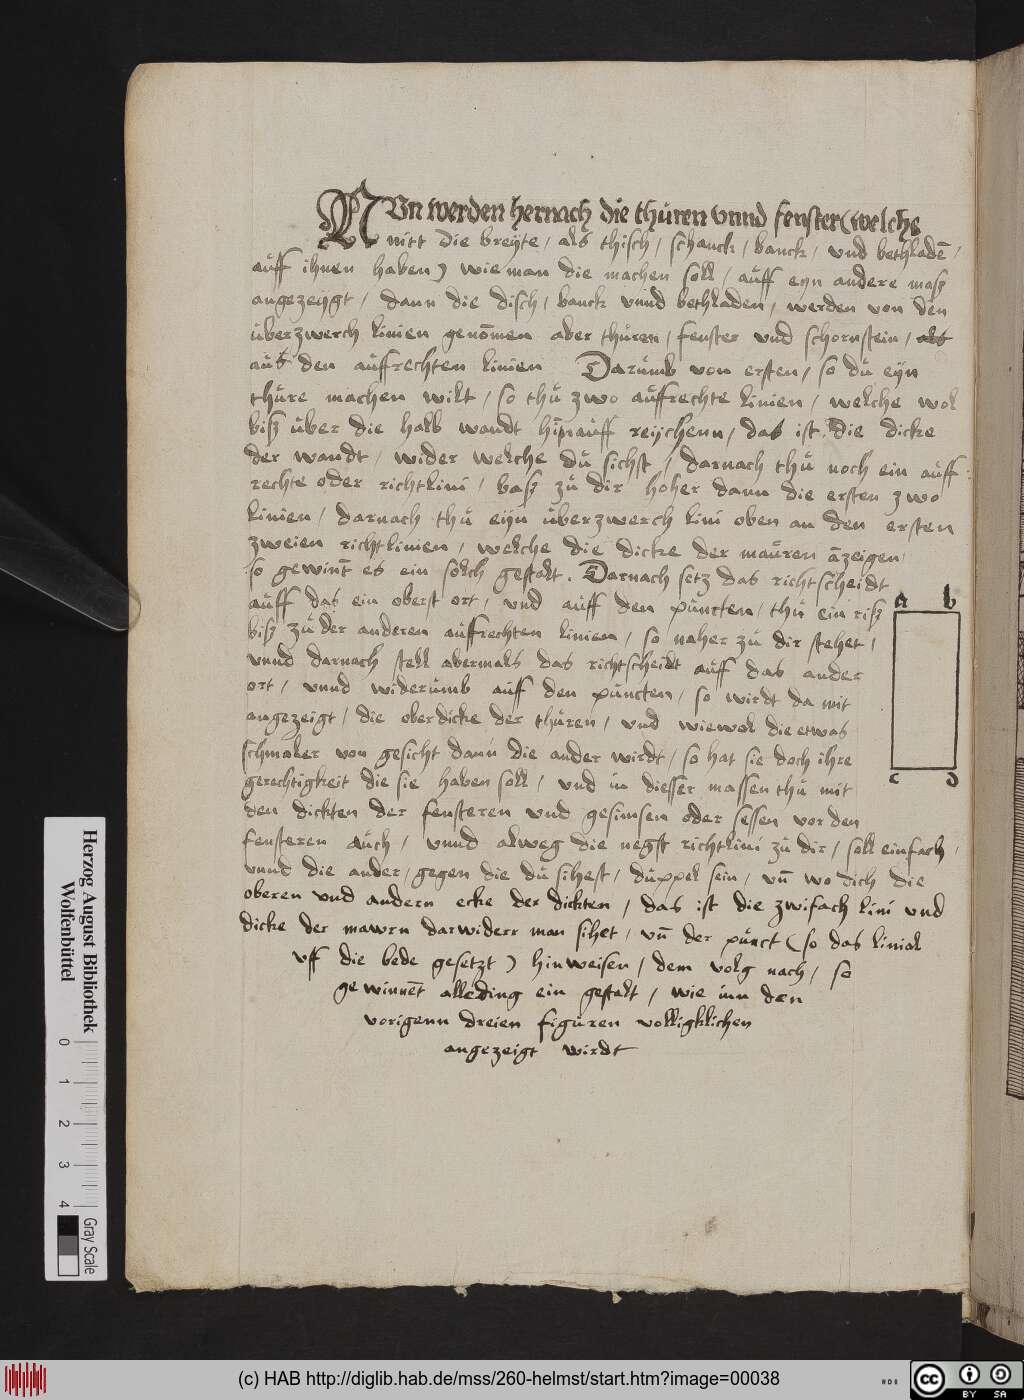 NUn werden hernach die thüren vnnd fenster (welche
nitt die breyte, als thisch, schanck, banck, vnd bethladē,
auff ihnen haben) wie man die machen soll, auff eyn andere masz
angezeygt, dann die disch, banck vnnd bethladen, werden von den
überzwerch linien genōmen aber thüren, fenster vnd schornstein, als
auß den auffrechten linien Darumb von ersten, so du eyn
thüre machen wilt, so thu zwo auffrechte linien, welche wol
bisz über die halb wandt hinauff reychenn, das ist die dicke
der wandt, wider welche du sichst, darnach thu noch ein auff
rechte oder richtlini, basz zu dir hoher dann die ersten zwo
linien, darnach thu eyn überzwerch lini oben an den ersten
zweien richtlinien, welche die dicke der mauren āzeigen,
so gewint es ein solch gestalt. Darnach setz das richtscheidt
auff das ein oberst ort, vnd auff den puncten, thu ein risz
bisz zu der anderen auffrechten linien, so naher zu dir stehet,
vnnd darnach stell abermals das richtscheidt auff das ander
ort, vnnd widerumb auff den puncten, so wirdt da mit
angezeigt, die oberdicke der thüren, vnd wiewol die etwas
schmaler von gesicht dann die ander wirdt, so hat sie doch ihre
gerechtigkeit die sie haben soll, vnd in diesser massen thu mit
den dickten der fensteren vnd gesimsen oder sessen vor den
fensteren auch, vnnd alweg die negst richtlini zu dir, soll einfach,
vnnd die ander, gegen die du sihest, duppel sein, vn̄ wo dich die
oberen vnd andern ecke der dickten, das ist die zwifach lini vnd
dicke der mawrn darwiderr man sihet, vn̄ der punct (so das linial
vff die bede gesetzt) hinweisen, dem volg nach, so
gewinnēt alleding ein gestalt, wie inn den
vorigenn dreien figuren volligklichen
angezeigt wirdt
a b
c d
Herzog August Bibliothek
Wolfenbüttel
0 1 2 3 4
Gray Scale
(c) HAB http://diglib.hab.de/mss/260-helmst/start.htm?image=00038
HAB
cc BY SA